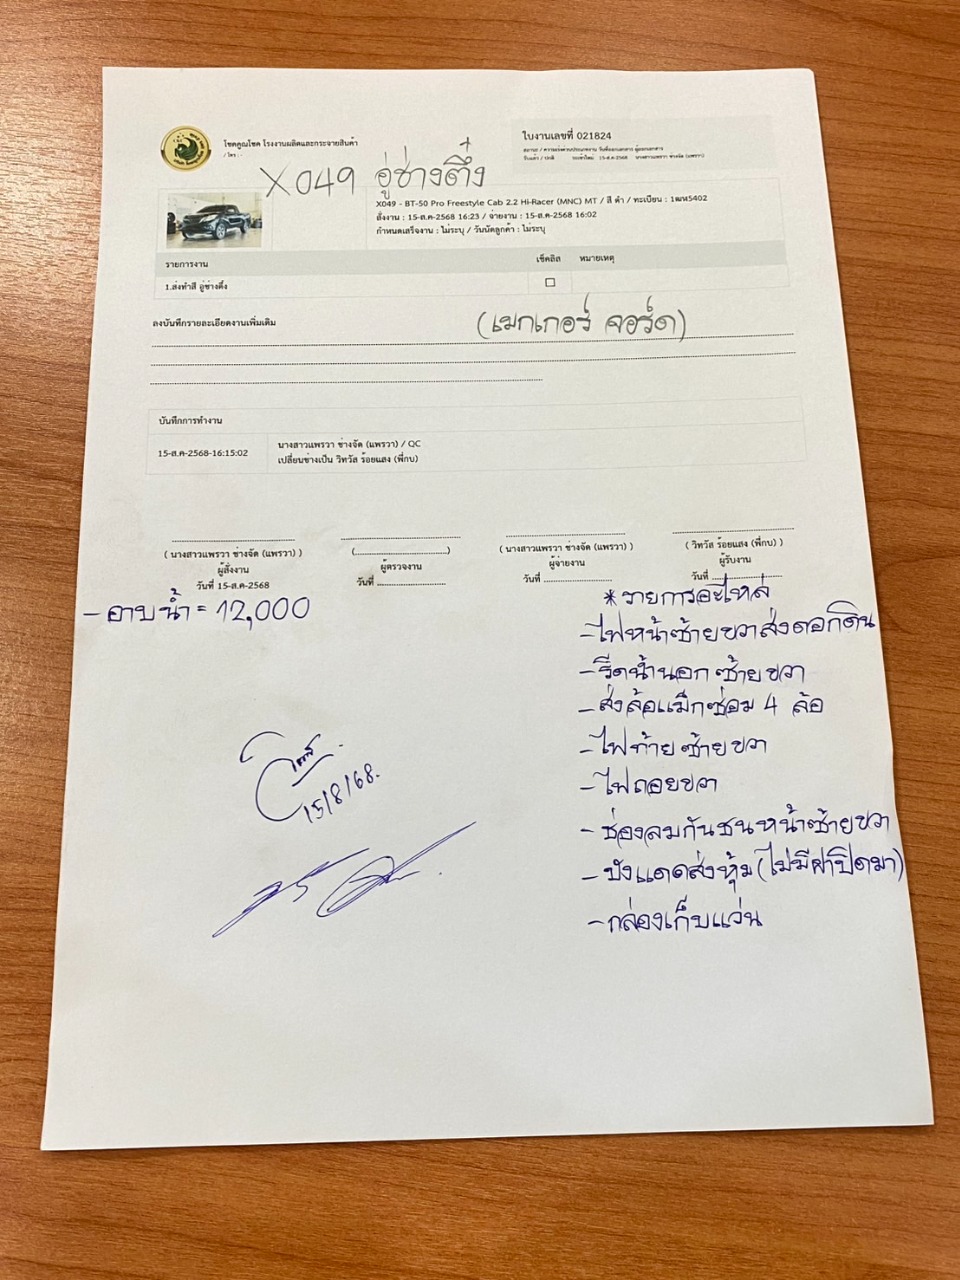 โชคคูณโชค โรงงานผลิตและกระจายสินค้า
/ โทร : -
ใบงานเลขที่ 021824
X049 อู่ช่างตึ๋ง
X049 - BT-50 Pro Freestyle Cab 2.2 Hi-Racer (MNC) MT / สี ดำ / ทะเบียน : 1ฒห5402
สั่งงาน : 15-ส.ค-2568 16:23 / จ่ายงาน : 15-ส.ค-2568 16:02
กำหนดเสร็จงาน : ไม่ระบุ / วันนัดลูกค้า : ไม่ระบุ
รายการงาน เช็คลิส หมายเหตุ
1.ส่งทำสี อู่ช่างตึ๋ง
ลงบันทึกรายละเอียดงานเพิ่มเติม
(เมกเกอร์ จอร์ด)
บันทึกการทำงาน
15-ส.ค-2568-16:15:02
นางสาวแพรวา ช่างจัด (แพรวา) / QC
เปลี่ยนช่างเป็น วิทวัส ร้อยแสง (พี่กบ)
( นางสาวแพรวา ช่างจัด (แพรวา) )
ผู้สั่งงาน
วันที่ 15-ส.ค-2568
(..............................)
ผู้ตรวจงาน
วันที่ ......................
( นางสาวแพรวา ช่างจัด (แพรวา) )
ผู้จ่ายงาน
วันที่ ......................
( วิทวัส ร้อยแสง (พี่กบ) )
ผู้รับงาน
วันที่ ......................
- อาบน้ำ = 12,000
* รายการอะไหล่
- ไฟหน้าซ้ายขวาส่งดอกดิน
- รีดน้ำนอก ซ้าย ขวา
- ส่งล้อแม็กซ่อม 4 ล้อ
- ไฟท้าย ซ้าย ขวา
- ไฟถอยขวา
- ช่องลมกันชนหน้าซ้ายขวา
- บังแดดส่งหุ้ม (ไม่มีฝาปิดมา)
- กล่องเก็บแว่น
15/8/68.